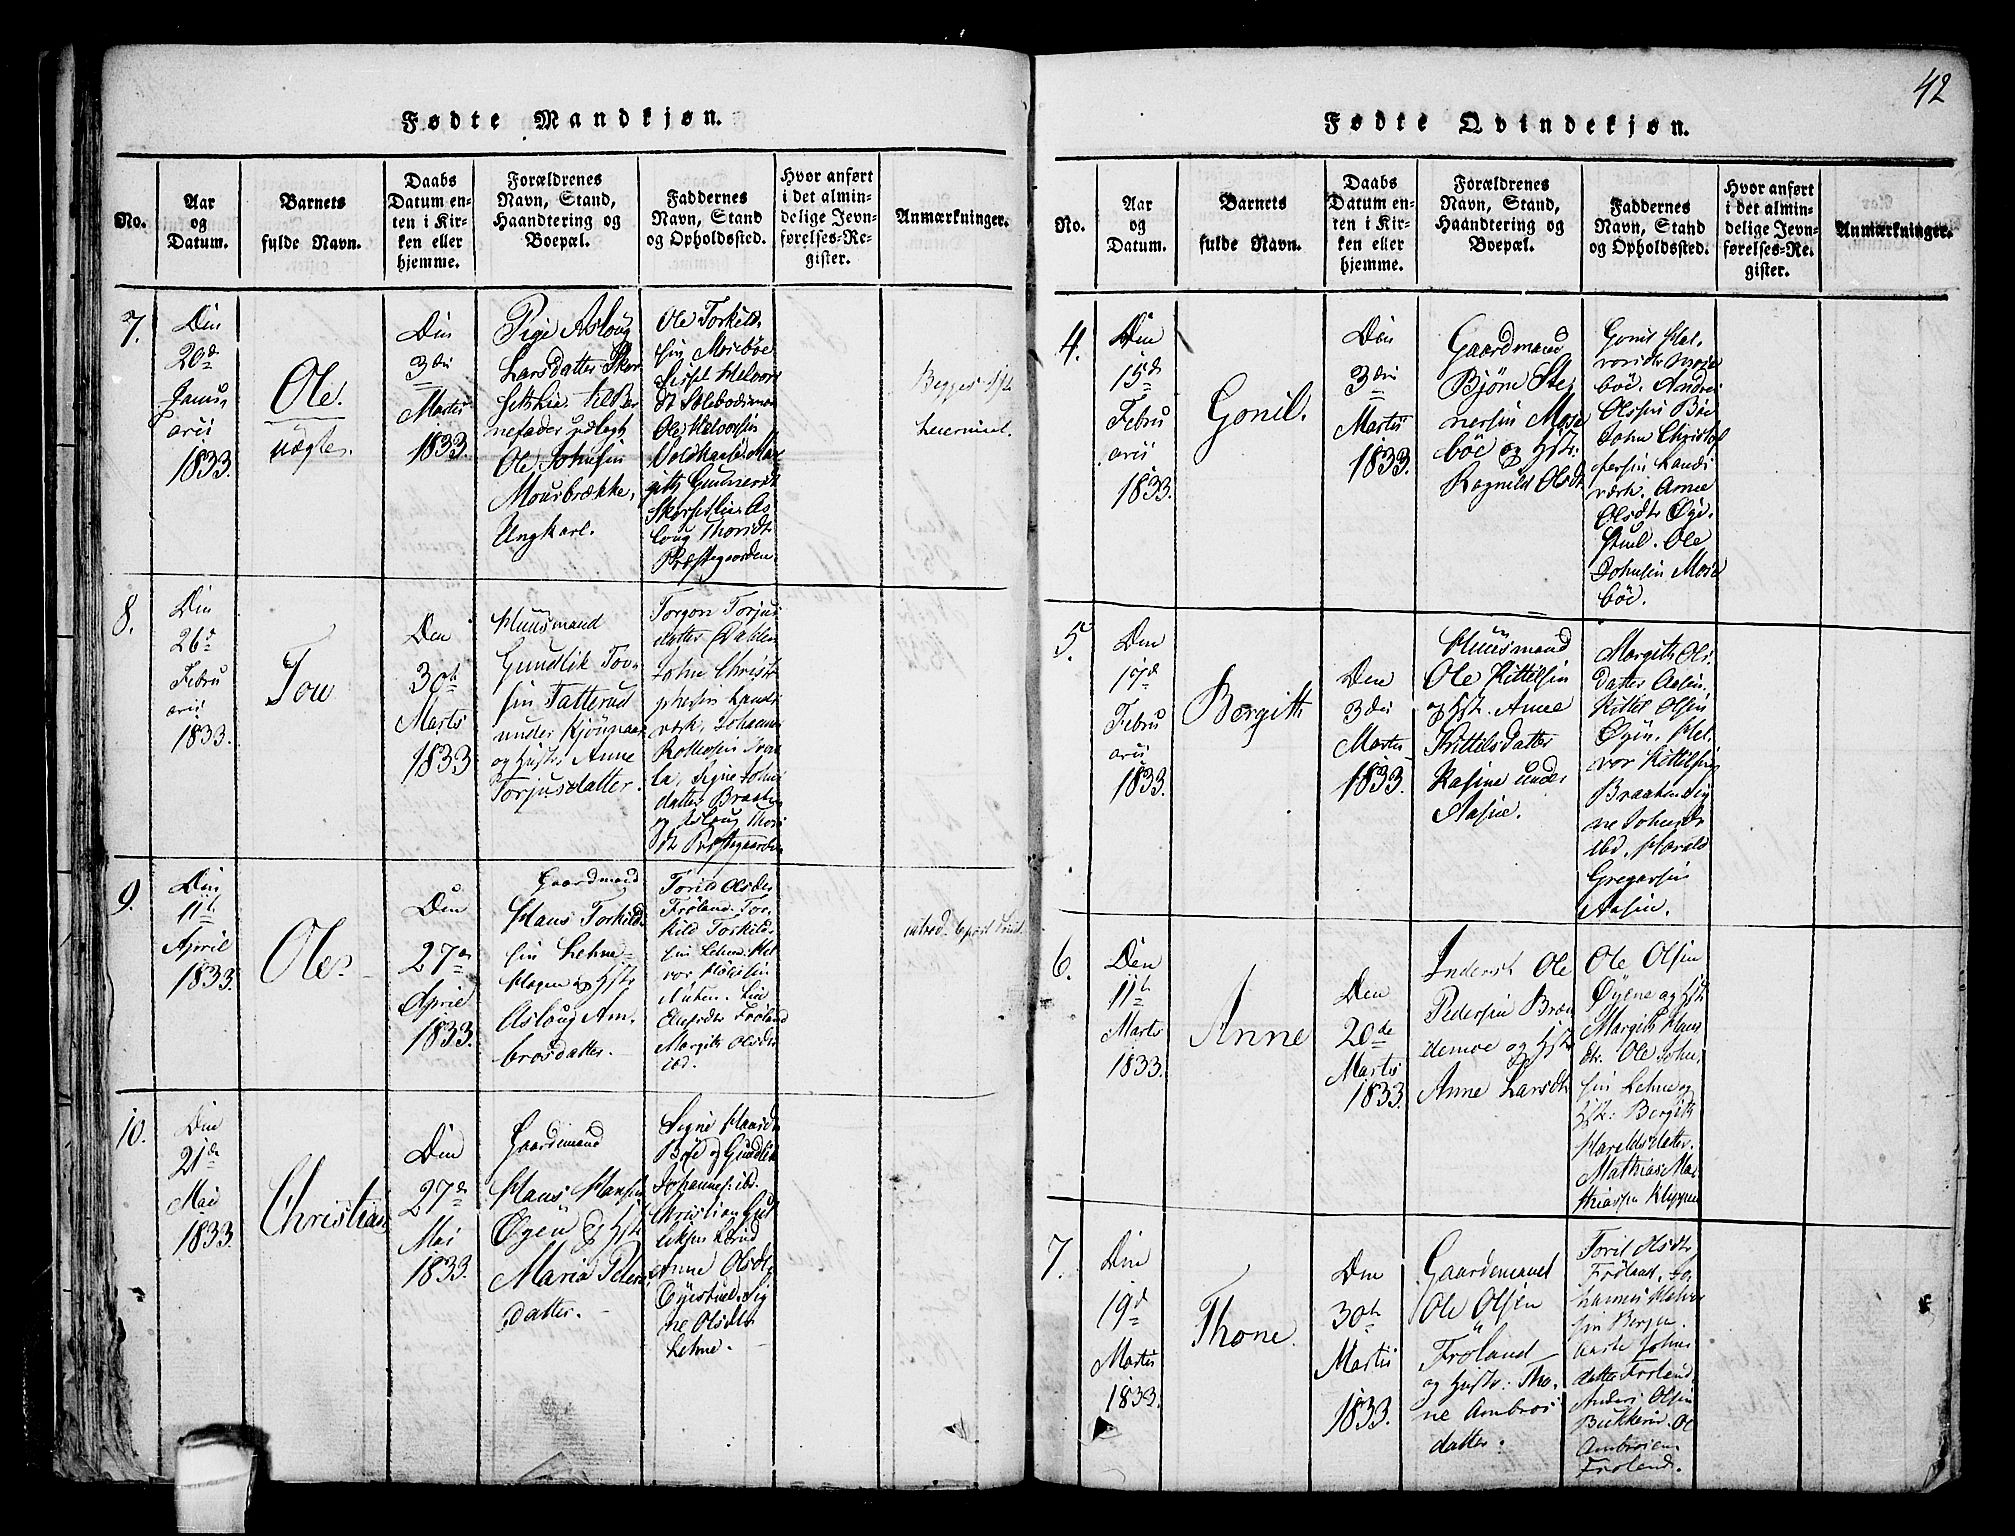 42
Fødte Mandkjøn.
No.
Aar
og
Datum.
Barnets
fulde Navn.
Daabs
Datum en-
ten i Kir-
ken eller
hjemme.
Forældrenes
Navn, Stand,
Haandtering og
Boepæl.
Faddernes
Navn, Stand
og Opholdssted.
Hvor anført
i det almin-
delige Jevn-
førelses-Re-
gister.
Anmærkninger.
7.
Den
20de
Janu-
arii
1833.
Ole.
uægte.
Den
3die
Martii
1833.
Pige Asloug
Larsdatter Skor
setthie. til Bar
nefader udlagt
Ole Johnsen
Mousbrække,
Ungkarl.
Ole Torkild
sen Mosebøe
Ole Halvorsen
Skorsetlie. As
loug Thorsdt
Præstegaarden.
Begges 1ste
Leiermaal.
8.
Den
26d
Febru
arii
1833.
Tov
Den
30th
Marts
1833
Huusmand
Gundlik Tov-
sen Tatterud
under Kjønnaas
og Hustr. Anne
Torjusdatter.
Torgon Torjus
datter Dahlen
John Christo
phersen Lands
værk, Johannes
datter Braaten
og Asloug Thors
dt Præstegaarden
9.
Den
11te
April
1833.
Ole
Den
27de
April
1833.
Gaardmand
Hans Torkild
sen Lehne-
Hagen og Hstr
Asloug Am-
brosdatter.
Toril Olsdtr
Frøland. Tor
kild Torkild
sen Lehne. Hal
vor
Frøland
Margith Olsdtr
ibd.
10.
Den
21de
Mai
1833.
Christian
Den
27de
Mai
1833.
Gaardemand
Hans Hansen
Øyen og Hstr
Maria Peders
datter.
Signe Hansdt
Bøe og Gundlik
Johannes: ibd.
Christian Gul
Anne Olsdt.
Øyestued. Sig
ne Olsdtr
Lehne.
Fødte Qvindekjøn.
No.
Aar
og
Datum.
Barnets
fulde Navn.
Daabs
Datum en-
ten i Kir-
ken eller
hjemme.
Forældrenes
Navn, Stand,
Haandtering og
Boepæl.
Faddernes
Navn, Stand
og Opholdssted.
Hvor anført
i det almin-
delige Jevn-
førelses-Re-
gister.
Anmærkninger.
4.
Den
15de
Febru
arii
1833.
Gonil.
Den
3die
Martii
1833.
Gaardmand
Bjørne Ste
nersen Mose
bøe og Hstr.
Ragnild Olsdt
Gonil Hal
vorsdtr Mose
bøe. Andrei
Olsen Bøe
John Christof
fersen Lands
værk. Anne
Olsdtr Øye-
stul. Ole
Johnsen Mose
bøe.
5.
Den
17de
Febru
arii
1833.
Bergith
Den
3die
Martii
1833.
Huusmand
Ole Kittilsen
og Hstr. Anne
Kittilsdatter
Kasine under
Aasine.
Margith Ols
datter Aasen.
Kittel Olsen
Øyen. Hal
vor Kittilsen
Braaten. Sig
ne Johnsdtr
ibd. Harald
Gregarsen
Aasen.
6.
Den
11te
Marts
1833.
Anne
Den
20de
Martii
1833.
Inderst Ole
Pedersen Bran
demoe og Hstr
Anne Larsdtr
Ole Olsen
Øyene og Hstr
Margith Hans
dtr. Ole John-
sen Lehne og
Hstr: Bergith
Haraldsdatter.
Mathias Mat
thiassen Kleppen
7.
Den
19de
Martii
1833.
Thone.
Den
30te
Martii
1833.
Gaardemand
Ole Olsen
Frøland
og Hustr: Tho-
ne Ambros
datter.
Toril Olsdtr
Frøland. Jo-
hannes Halvor
sen Bergen.
Aaste Johns
datter Frøland.
Anders Olsen
Bukkerie. Og
Ambrosen
Frøland.